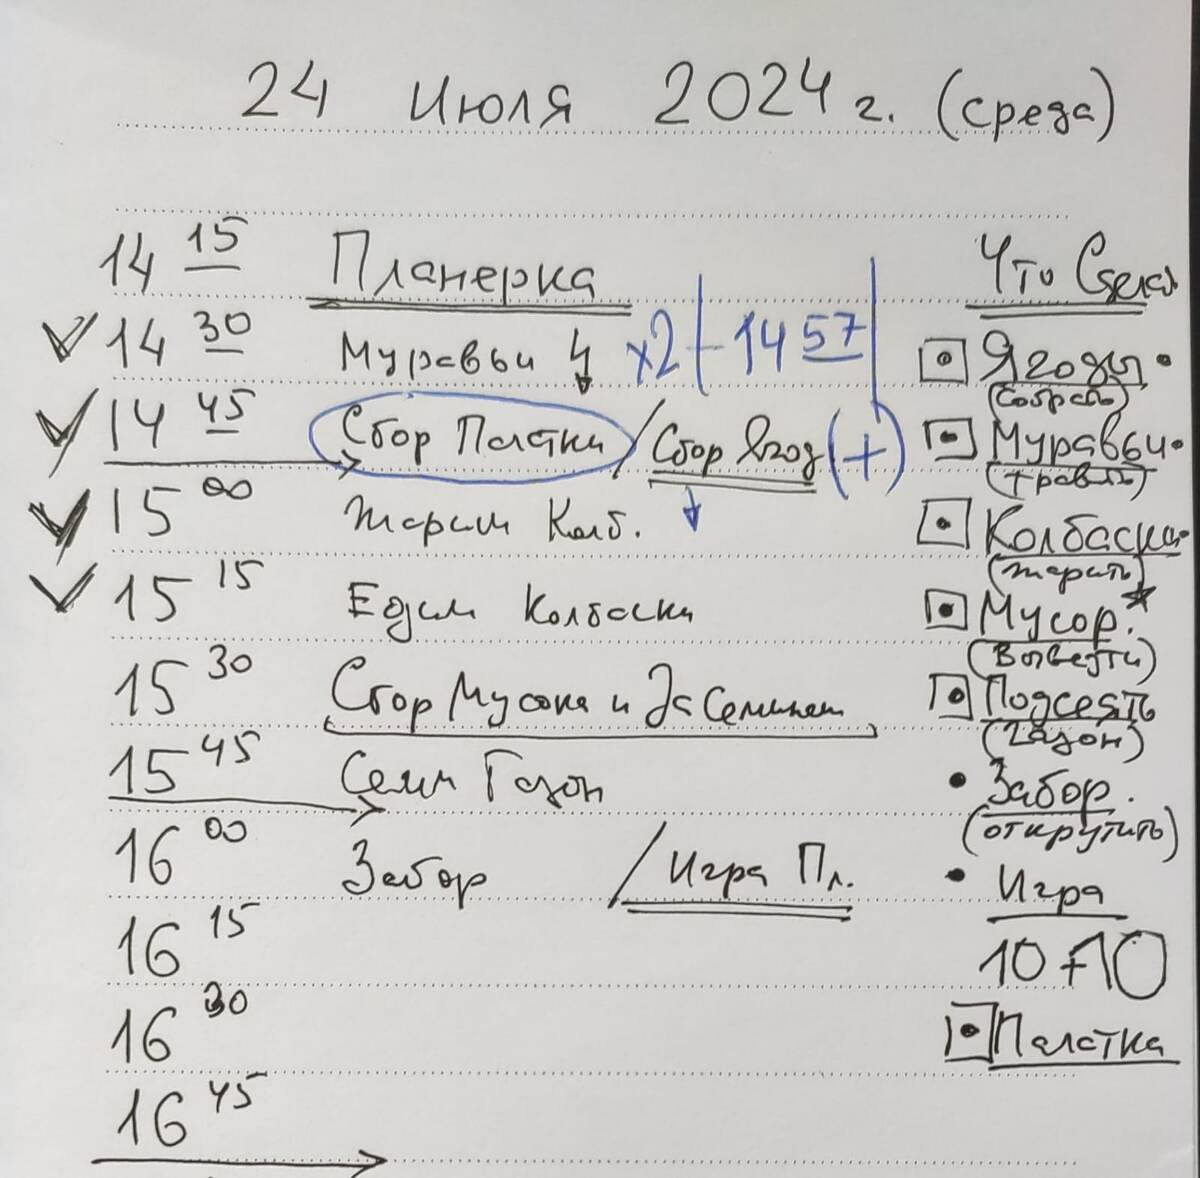 24 Июля 2024 г. (среда)
14 15 Планерка
14 30 Муравьи x2 - 14 57
14 45 Сбор Палатки / Сбор Ягод (+)
15 00 Жарим Колб.
15 15 Едим Колбаски
15 30 Сбор Мусора и За Семенам
15 45 Сеим Газон
16 00 Забор / Игра Пл.
16 15
16 30
16 45
Что Сделать
Ягоды
(собрать)
Муравьи
(травить)
Колбаски
(жарить)
Мусор.
(Вывезти)
Подсеять
(газон)
Забор.
(открутить)
Игра
10+10
Палатка